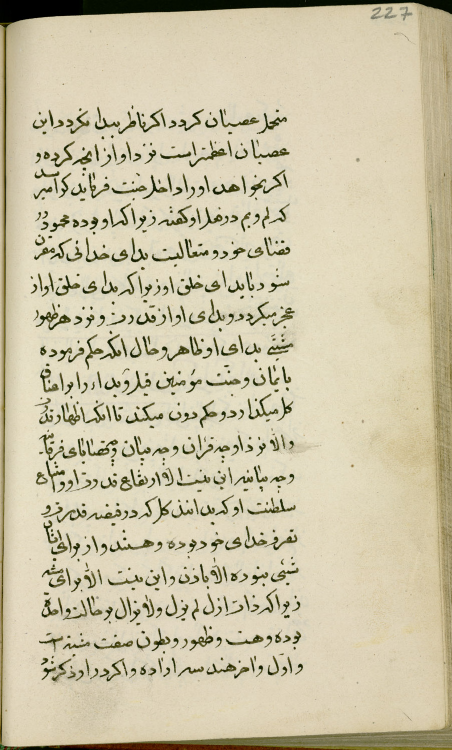 227
متحمل عصیان کردد اکر ناظر ببدا نکردد این
عصیان اعظمتر است نزد او از انچه کرده و
اکر بخواهد او را داخل جنت فرماید کرا میرسد
که لم و بم در فعل او کفته زیرا که او بوده محمود در
قضای خود و متعالیست بدای خدائی که مقرن
شود با بدای خلق او زیرا که بدای خلق او از
عجز میکردد و بدای او از قدرت و نزد هر ظهور
مشیّتی بدای او ظاهر و حال انکه حکم فرموده
بایمان و جنت مؤمنین قبل و بداء را بر اعناق
کل میکذارد و حکم دون میکند تا انکه اظهار قدرت
والا نزد او چه قران و چه بیان چه نصارای فرقانیه
چه بیانیه این نیست الا ارتفاع قدرت او و امتناع
سلطنت او که بدانند کل که در قبضه قدرت و
تفرد خدای خود بوده و هستند و از برای ایشان
شیئی نبوده الا باذن و این نیست الا برای مشیت
زیرا که ذات ازل لم یزل و لا یزال بر حالت واحده
بوده و هست و ظهور و بطون صفت مشیت است
و اول و اخر هند سه اراده و اکر در او ذکر شود